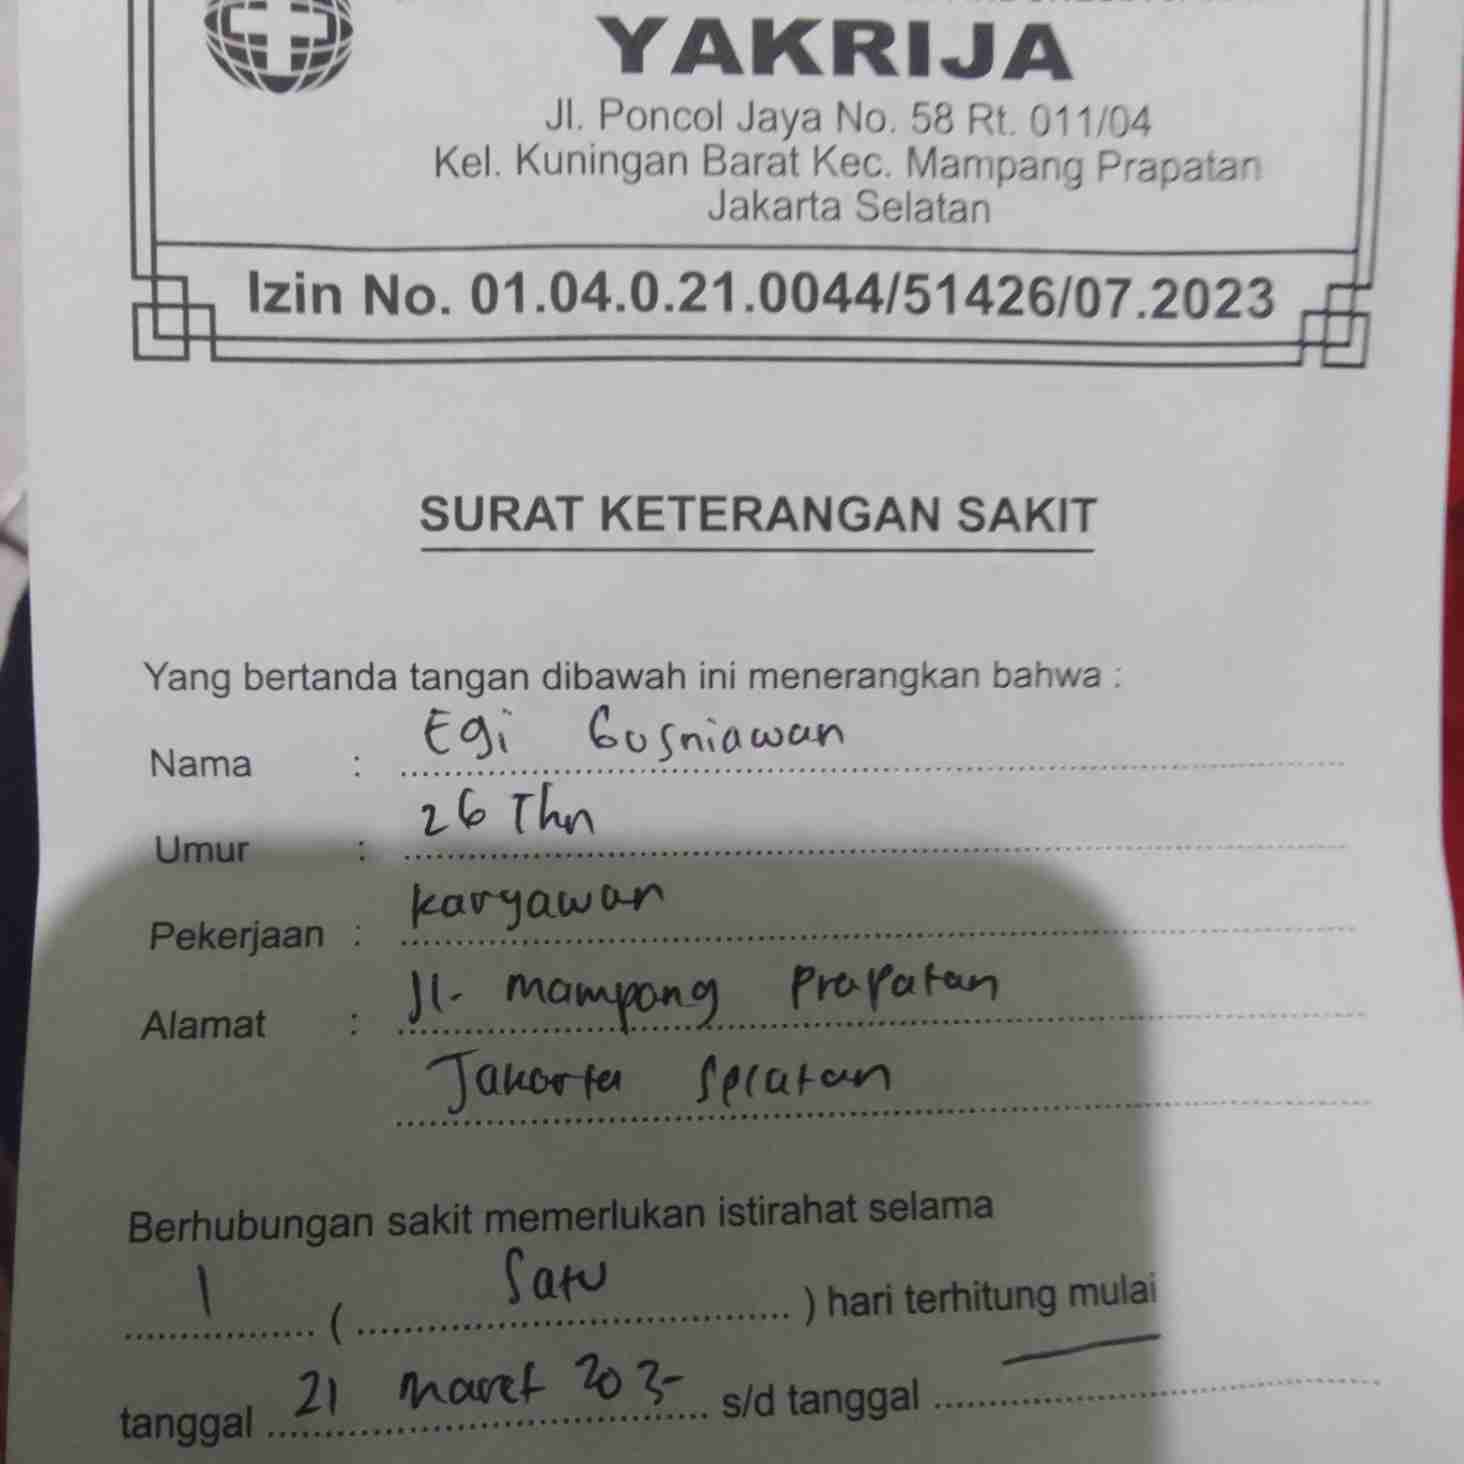 YAKRIJA
Jl. Poncol Jaya No. 58 Rt. 011/04
Kel. Kuningan Barat Kec. Mampang Prapatan
Jakarta Selatan
Izin No. 01.04.0.21.0044/51426/07.2023
SURAT KETERANGAN SAKIT
Yang bertanda tangan dibawah ini menerangkan bahwa :
Nama : Egi Gusniawan
Umur : 26 Thn
Pekerjaan : Karyawan
Alamat : Jl. Mampang Prapatan
Jakarta Selatan
Berhubungan sakit memerlukan istirahat selama
1 ( Satu ) hari terhitung mulai
tanggal 21 Maret s/d tanggal —